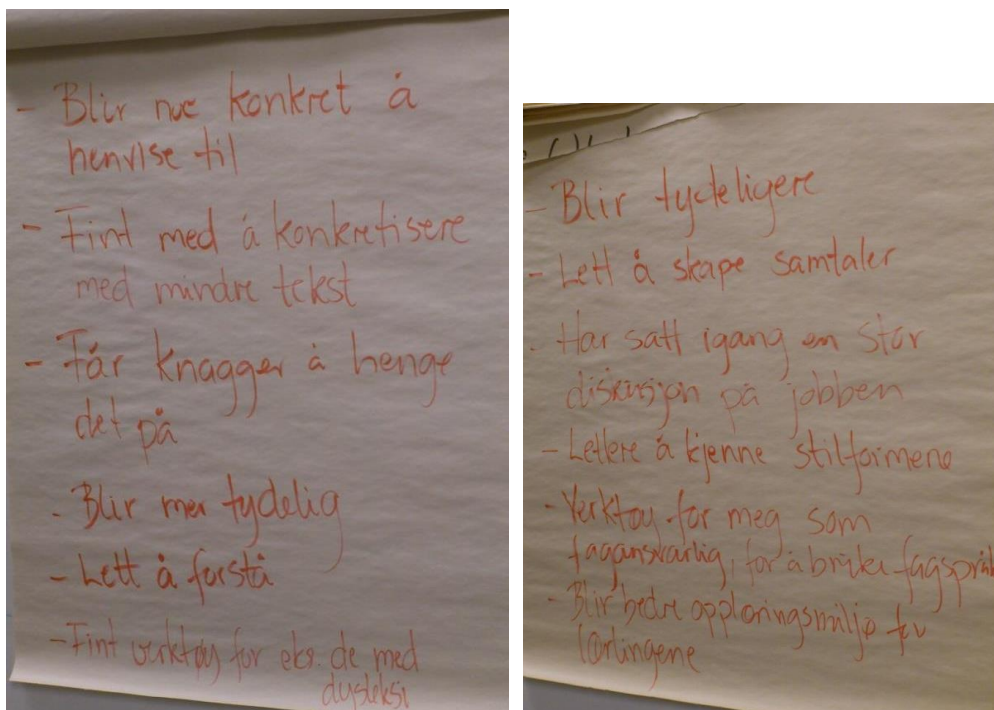 - Blir noe konkret å
henvise til
- Fint med å konkretisere
med mindre tekst
- Får knagger å henge
det på
- Blir mer tydelig
- Lett å forstå
- Fint verktøy for eks. de med
dysleksi
- Blir tydeligere
- Lett å skape samtaler
- Har satt igang en stor
diskusjon på jobben
- Lettere å kjenne stilformene
- Verktøy for meg som
fagansvarlig, for å bruke fagspråk
- Blir bedre opplæringsmiljø for
lærlingene